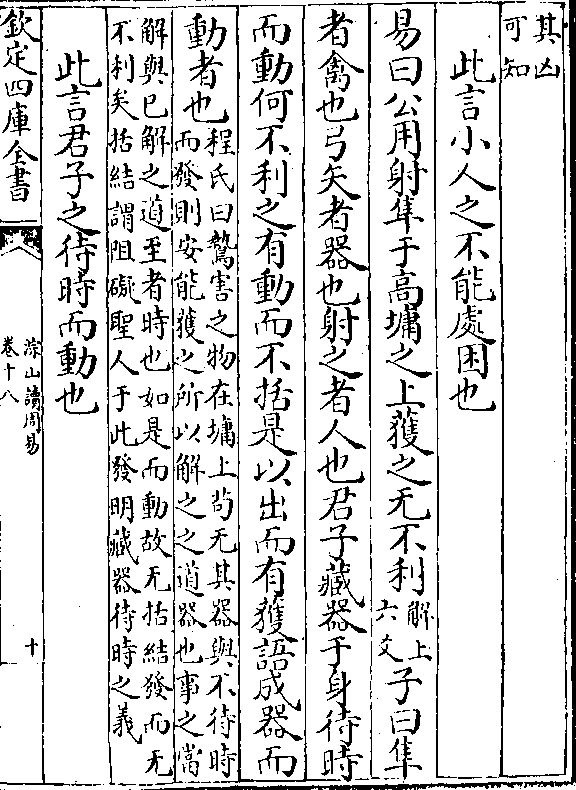 其凶
可知
此言小人之不能處困也
易曰公用射隼于高墉之上獲之无不利解上六爻子曰隼
者禽也弓矢者器也射之者人也君子藏器于身待時
而動何不利之有動而不括是以出而有獲語成器而
動者也程氏曰鷙害之物在墉上苟无其器與不待時
而發則安能獲之所以解之之道器也事之當
解與已解之道至者時也如是而動故无括結發而无
不利矣括結謂阻礙聖人于此發明藏器待時之義
此言君子之待時而動也
欽定四庫全書
淙山讀周易
卷十八
十